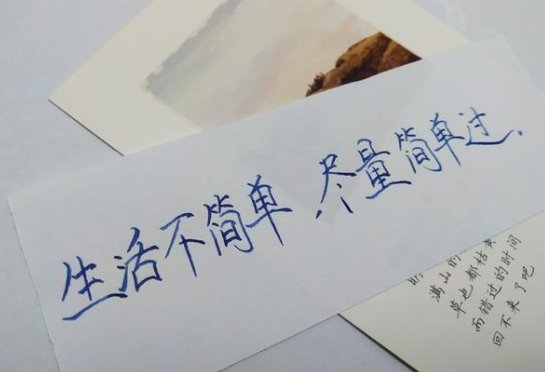 生活不简单 尽量简单过.
满山的
草也都枯
而错过的时间
回不来了吧